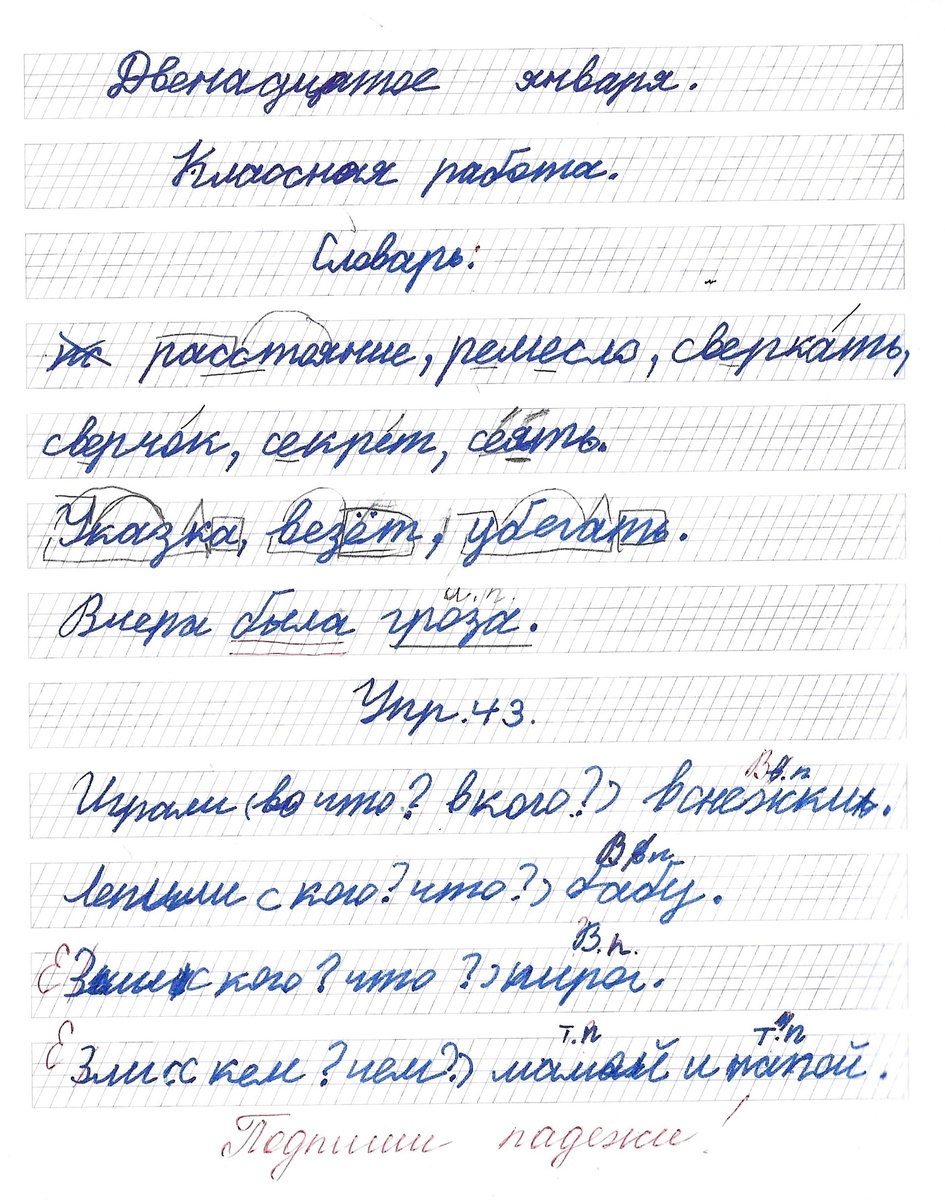 Двенадцатое января.
Классная работа.
Словарь:
расстояние, ремесло, сверка́ть,
сверчо́к, секре́т, се́ять.
Указка, везёт, убегать.
и.п.
Вчера была гроза.
Упр. 43.
В в.п
Играли (во что? в кого?) в снежки.
В в п
Лепили (кого? что?) бабу.
В.п.
Е Зли (кого? что?) пирог.
т.п т.п
Е Зли (с кем? чем?) мамой и папой.
Подпиши падежи!